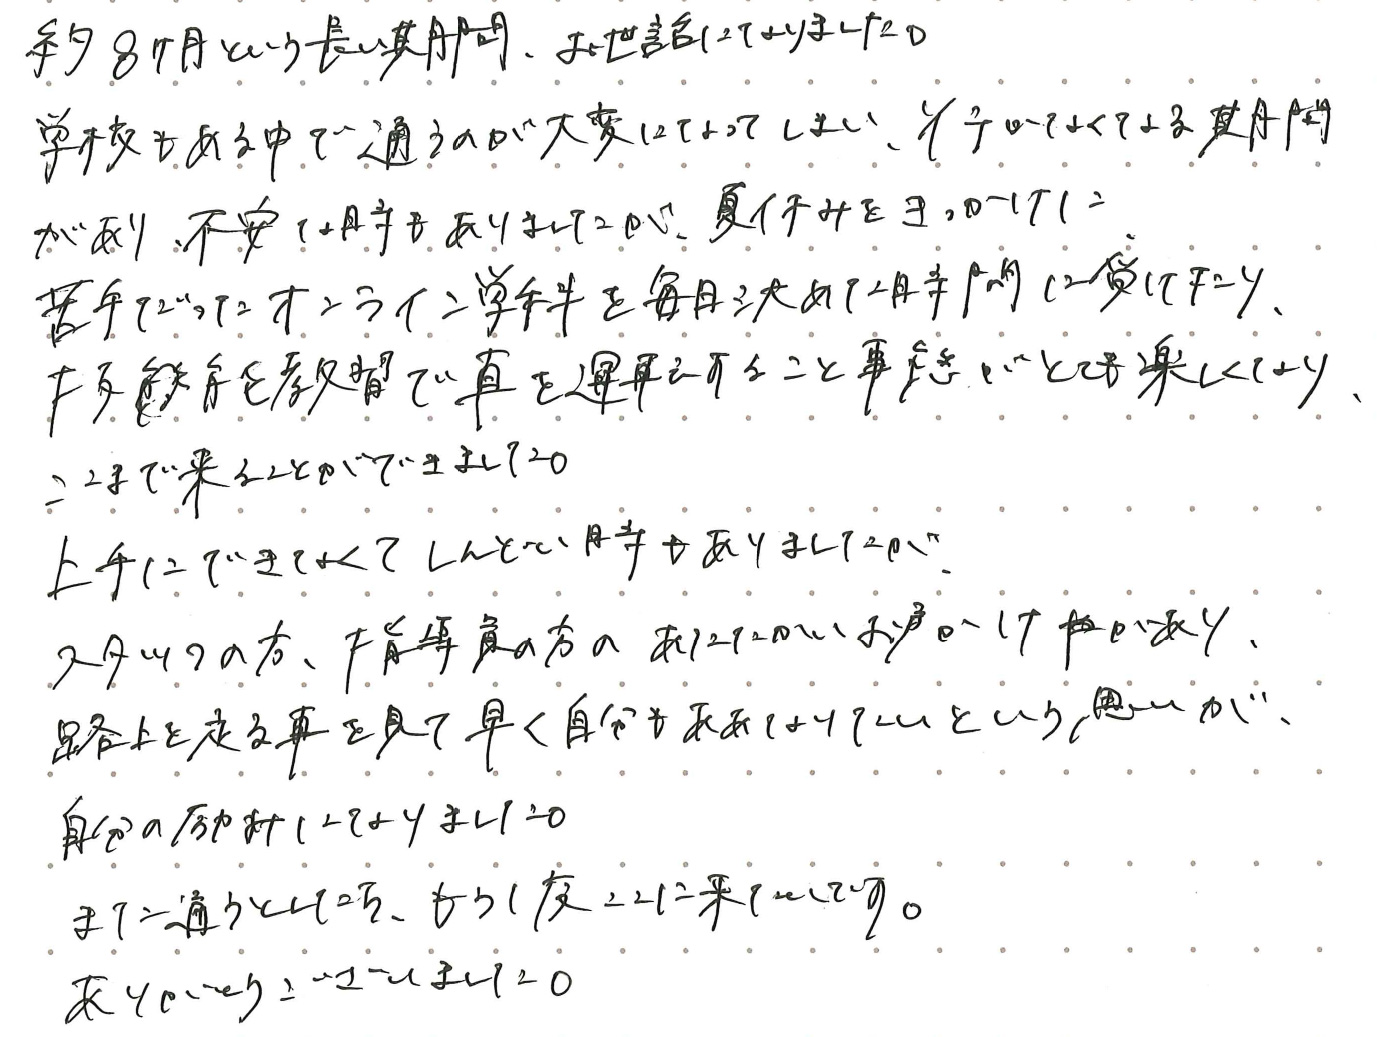 約8ヶ月という長い期間、お世話になりました。
学校もある中で通うのが大変になってしまい、行かなくなる期間
があり、不安な時もありましたが、夏休みをきっかけに
苦手だったオンライン学科を毎日決めた時間に受けたり、
技能教習で車を運転すること事態がとても楽しくなり、
ここまで来ることができました。
上手にできなくてしんどい時もありましたが、
スタッフの方、指導員の方のあたたかいお声かけがあり、
路上を走る車を見て早く自分もああなりたいという思いが、
自分の励みになりました。
また通うとしたら、もう1度ここに来たいです。
ありがとうございました。